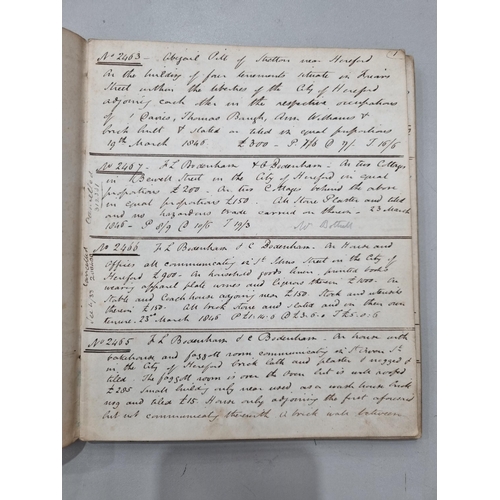 1
No 2463 - Abigail Pitt of Shotton near Hereford
On the building of four tenements situate in Friars
Street within the liberties of the City of Hereford
adjoining each other in the respective occupations
of Davies, Thomas Baugh, Ann Williams &
brick built & slated or tiled in equal proportions
19th March 1846 £300 - P 7/6 D 7/- T 15/6
No 2467 - F L Bodenham & C Bodenham. On two Cottages
in Bewell Street in the City of Hereford in equal
proportions £200. On two Cottages behind the above
in equal proportions £150. All Stone Plaster and tiled
and no hazardous trade carried on therein - 23 March
1846 - P 8/9 D 10/5 T 19/3
Cancelled
No 2466 F L Bodenham & C Bodenham. On House and
Offices all communicating in St Johns Street in the City of
Hereford £900. On household goods linen, printed books
wearing apparel plate wines and liquors therein £1000. On
Stable and Coach house adjoining near £150. Stock and utensils
therein £150. All brick Stone and slated and in their own
tenure. 23d March 1846 P £1.14.0 D £3.6.0 T £5.0.6
Cancelled
No 2465 F L Bodenham & C Bodenham. On house with
bakehouse and faggott room communicating in
in the City of Hereford brick lath and plaster & nogged &
tiled. The faggott room is over the oven but is well roofed
£285 Small building only near used as a wash house brick
nog and tiled £15. House only adjoining the first aforesaid
but not communicating therewith a brick wall between